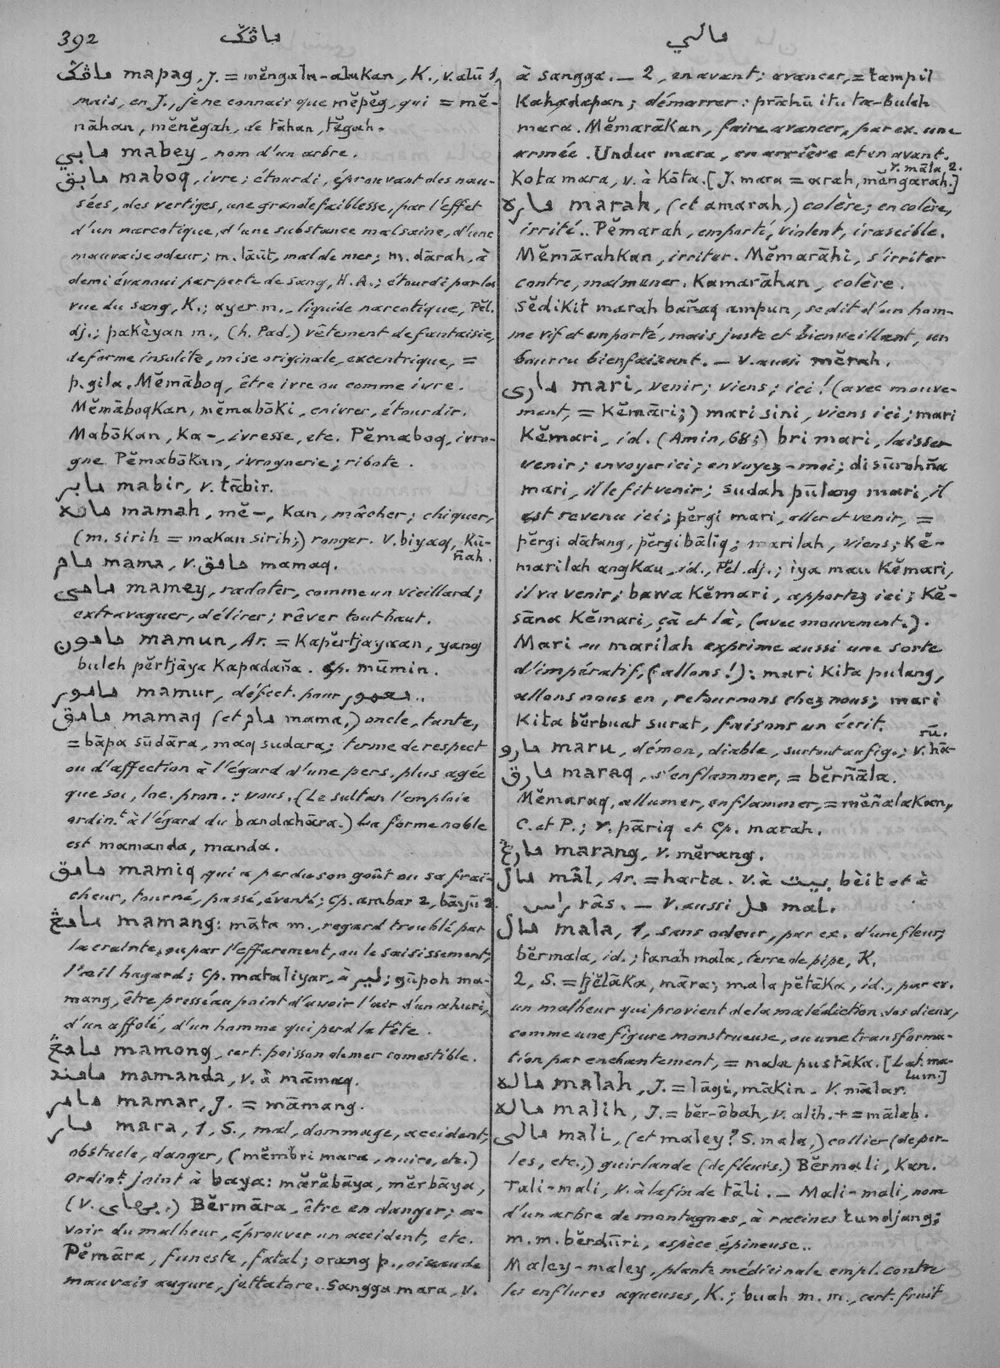 392 ماڤݢ مالي
ماڤݢ mapag, J. = mĕngalu-alukan, K., v. alū 1,
mais, en J., je ne connais que mĕpĕg, qui = mĕ-
nāhan, mĕnĕgah, de tāhan, tĕgah.
مابي mabey, nom d'un arbre.
مابق maboq, ivre; étourdi, éprouvant des nau-
sées, des vertiges, une grande faiblesse, par l'effet
d'un narcotique, d'une substance malsaine, d'une
mauvaise odeur; m. lāūt, mal de mer; m. dārah, à
demi évanoui par perte de sang, H. A.; étourdi par la
vue du sang, K.; ayer m., liquide narcotique, Pĕl.
dj.; pakèyan m., (h. Pad.) vêtement de fantaisie,
de forme insolite, mise originale, excentrique, =
p. gila. Mĕmāboq, être ivre ou comme ivre.
Mĕmāboqkan, mĕmabōki, enivrer, étourdir.
Mabōkan, ka-, ivresse, etc. Pĕmaboq, ivro-
gne. Pĕmabōkan, ivrognerie; ribote.
مابر mabir, v. tābir.
مامه mamah, mĕ-, kan, mâcher; chiquer,
(m. sirih = makan sirih;) ronger. V. biyaq, kū-
ñah.
مام mama, v. مامق mamaq.
مامي mamey, radoter, comme un vieillard;
extravaguer, délirer; rêver tout haut.
مامون mamun, Ar. = kapĕrtjayaan, yang
buleh pĕrtjāya kapadaña. Cp. mūmin.
مامور mamur, défect. pour معمور..
مامق mamaq (et مام mama,) oncle, tante,
= bāpa sūdāra, maq sudara; terme de respect
ou d'affection à l'égard d'une pers. plus agée
que soi, loc. pron.: vous. (Le sultan l'emploie
ordin.t à l'égard du bandahāra.) La forme noble
est mamanda, manda.
مامق mamiq qui a perdu son goût ou sa fraî-
cheur, tourné, passé, éventé; Cp. ambar 2, bāsyū 2.
مامڠ mamang: māta m., regard troublé par
la crainte, ou par l'effarement, ou le saisissement,
l'œil hagard; Cp. mataliyar, à لير; gūpoh ma-
mang, être pressé au point d'avoir l'air d'un ahuri,
d'un affolé, d'un homme qui perd la tête.
مامڠ mamong, cert. poisson de mer comestible.
مامند mamanda, v. à māmaq.
مامر mamar, J. = māmang.
مار mara, 1, S., mal, dommage, accident,
obstacle, danger, (mĕmbri mara, nuire, etc.)
Ordin.t joint à baya: mārābāya, mĕrbāya,
(v. بهاي.) Bĕrmāra, être en danger; a-
voir du malheur, éprouver un accident, etc.
Pĕmāra, funeste, fatal; orang p., oiseau de
mauvais augure, jettatore. Sangga mara, v.
à sangga. — 2, en avant; avancer, = tampil
kahadapan; démarrer: prāhū itu ta-buleh
mara. Mĕmarākan, faire avancer, par ex. une
armée. Undur mara, en arrière et en avant.
v. māla 2.
Kota mara, v. à kōta. [J. mara = arah, mĕngarah.]
ماره marah, (et amarah,) colère; en colère,
irrité.. Pĕmarah, emporté, violent, irascible.
Mĕmārahkan, irriter. Mĕmarāhi, s'irriter
contre, malmener. Kamarāhan, colère.
Sĕdikit marah bañaq ampun, se dit d'un hom-
me vif et emporté, mais juste et bienveillant, un
bourru bienfaisant. — V. aussi mĕrah.
ماري mari, venir; viens; ici! (avec mouve-
ment, = kĕmāri;) mari sini, viens ici; mari
kĕmari, id. (Amin, 68;) bri mari, laisser
venir; envoyer ici; envoyez-moi; disūrohña
mari, il le fit venir; sudah pūlang mari, il
est revenu ici; pĕrgi mari, aller et venir, =
pĕrgi dātang, pĕrgi bāliq; marilah, viens; kĕ-
marilah angkau, id., Pĕl. dj.; iya mau kĕmari,
il va venir; bawa kĕmari, apportez ici; kĕ-
sāna kĕmari, çà et là, (avec mouvement.).
Mari ou marilah exprime aussi une sorte
d'impératif, (allons!): mari kita pulang,
allons nous en, retournons chez nous; mari
kita bĕrbuat surat, faisons un écrit.
rū.
مارو maru, démon, diable, surtout au fig.; v. hā-
مارق maraq, s'enflammer, = bĕrñāla.
Mĕmaraq, allumer, enflammer, = mĕñalakan,
C. et P.; v. pāriq et Cp. marah.
مارڠ marang, v. mĕrang.
مال mâl, Ar. = harta. v. à بيت bèit et à
راس râs. — V. aussi مل mal.
مال mala, 1, sans odeur, par ex. d'une fleur;
bĕrmala, id.; tanah mala, terre de pipe, K.
2, S. = tjĕlāka, māra; mala pĕtāka, id., par ex.
un malheur qui provient de la malédiction des dieux,
comme une figure monstrueuse, ou une transforma-
tion par enchantement, = mala pustāka. [Lat. ma-
lum]
ماله malah, J. = lāgi, mākin. V. mālar.
ماله malih, J. = bĕr-ōbah, v. alih. + = mālah.
مالي mali, (et maley? S. mala,) collier (de per-
les, etc.,) guirlande (de fleurs.) Bĕrmali, kan.
Tali-mali, v. à la fin de tāli. — Mali-mali, nom
d'un arbre de montagnes, à racines tundjang;
m. m. bĕrdūri, espèce épineuse..
Maley-maley, plante médicinale empl. contre
les enflures aqueuses, K.; buah m. m., cert. fruit